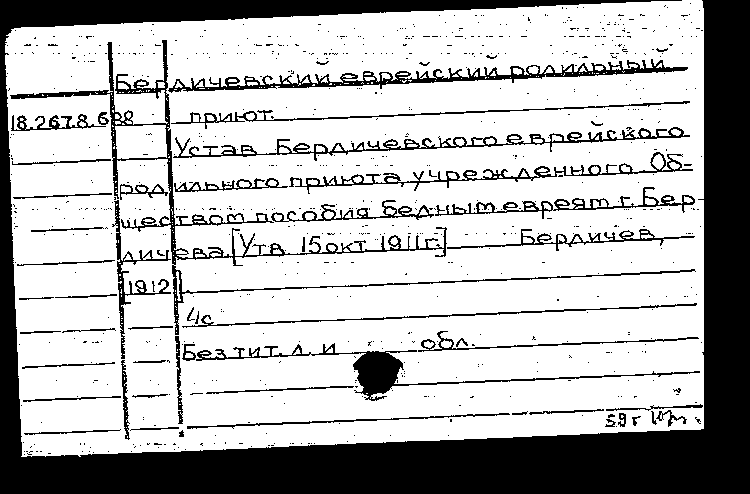 Бердичевский еврейский родильный
18.267.8.688 приют.
Устав Бердичевского еврейского
родильного приюта, учрежденного Об-
ществом пособия бедным евреям г. Бер-
дичева. [Утв. 15 окт. 1911 г.] Бердичев,
[1912].
4с
Без тит. л. и обл.
59г